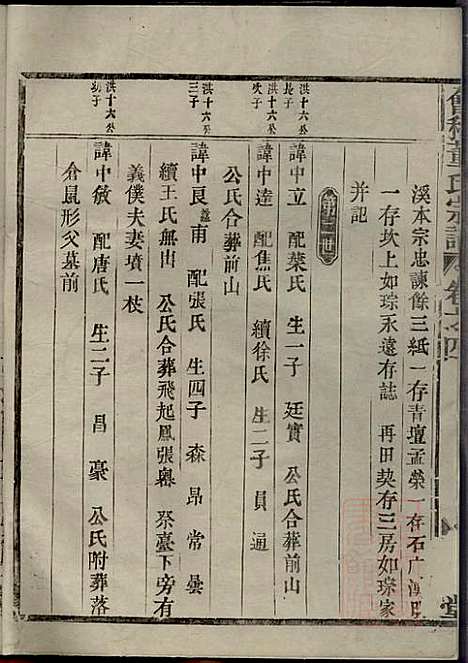 董氏宗譜
溪本宗忠諫餘三紙一存青壇孟榮一存石广潭
一存坎上如琮永遠存誌 再田契存三房如琮家
并記
第二世
洪十六公
長子
諱中立 配葉氏 生一子 廷實 公氏合葬前山
洪十六公
次子
諱中逵 配焦氏 續徐氏 生二子 員 通
公氏合葬前山
洪十六公
三子
諱中良 南 配張氏 生四子 森 昂 常 曇
續王氏無出 公氏合葬飛起鳳張粵 祭臺下旁有
義僕夫妻墳一枝
洪十六公
幼子
諱中敘 配唐氏 生二子 昌 豪 公氏附葬落
倉鼠形父墓前
堂